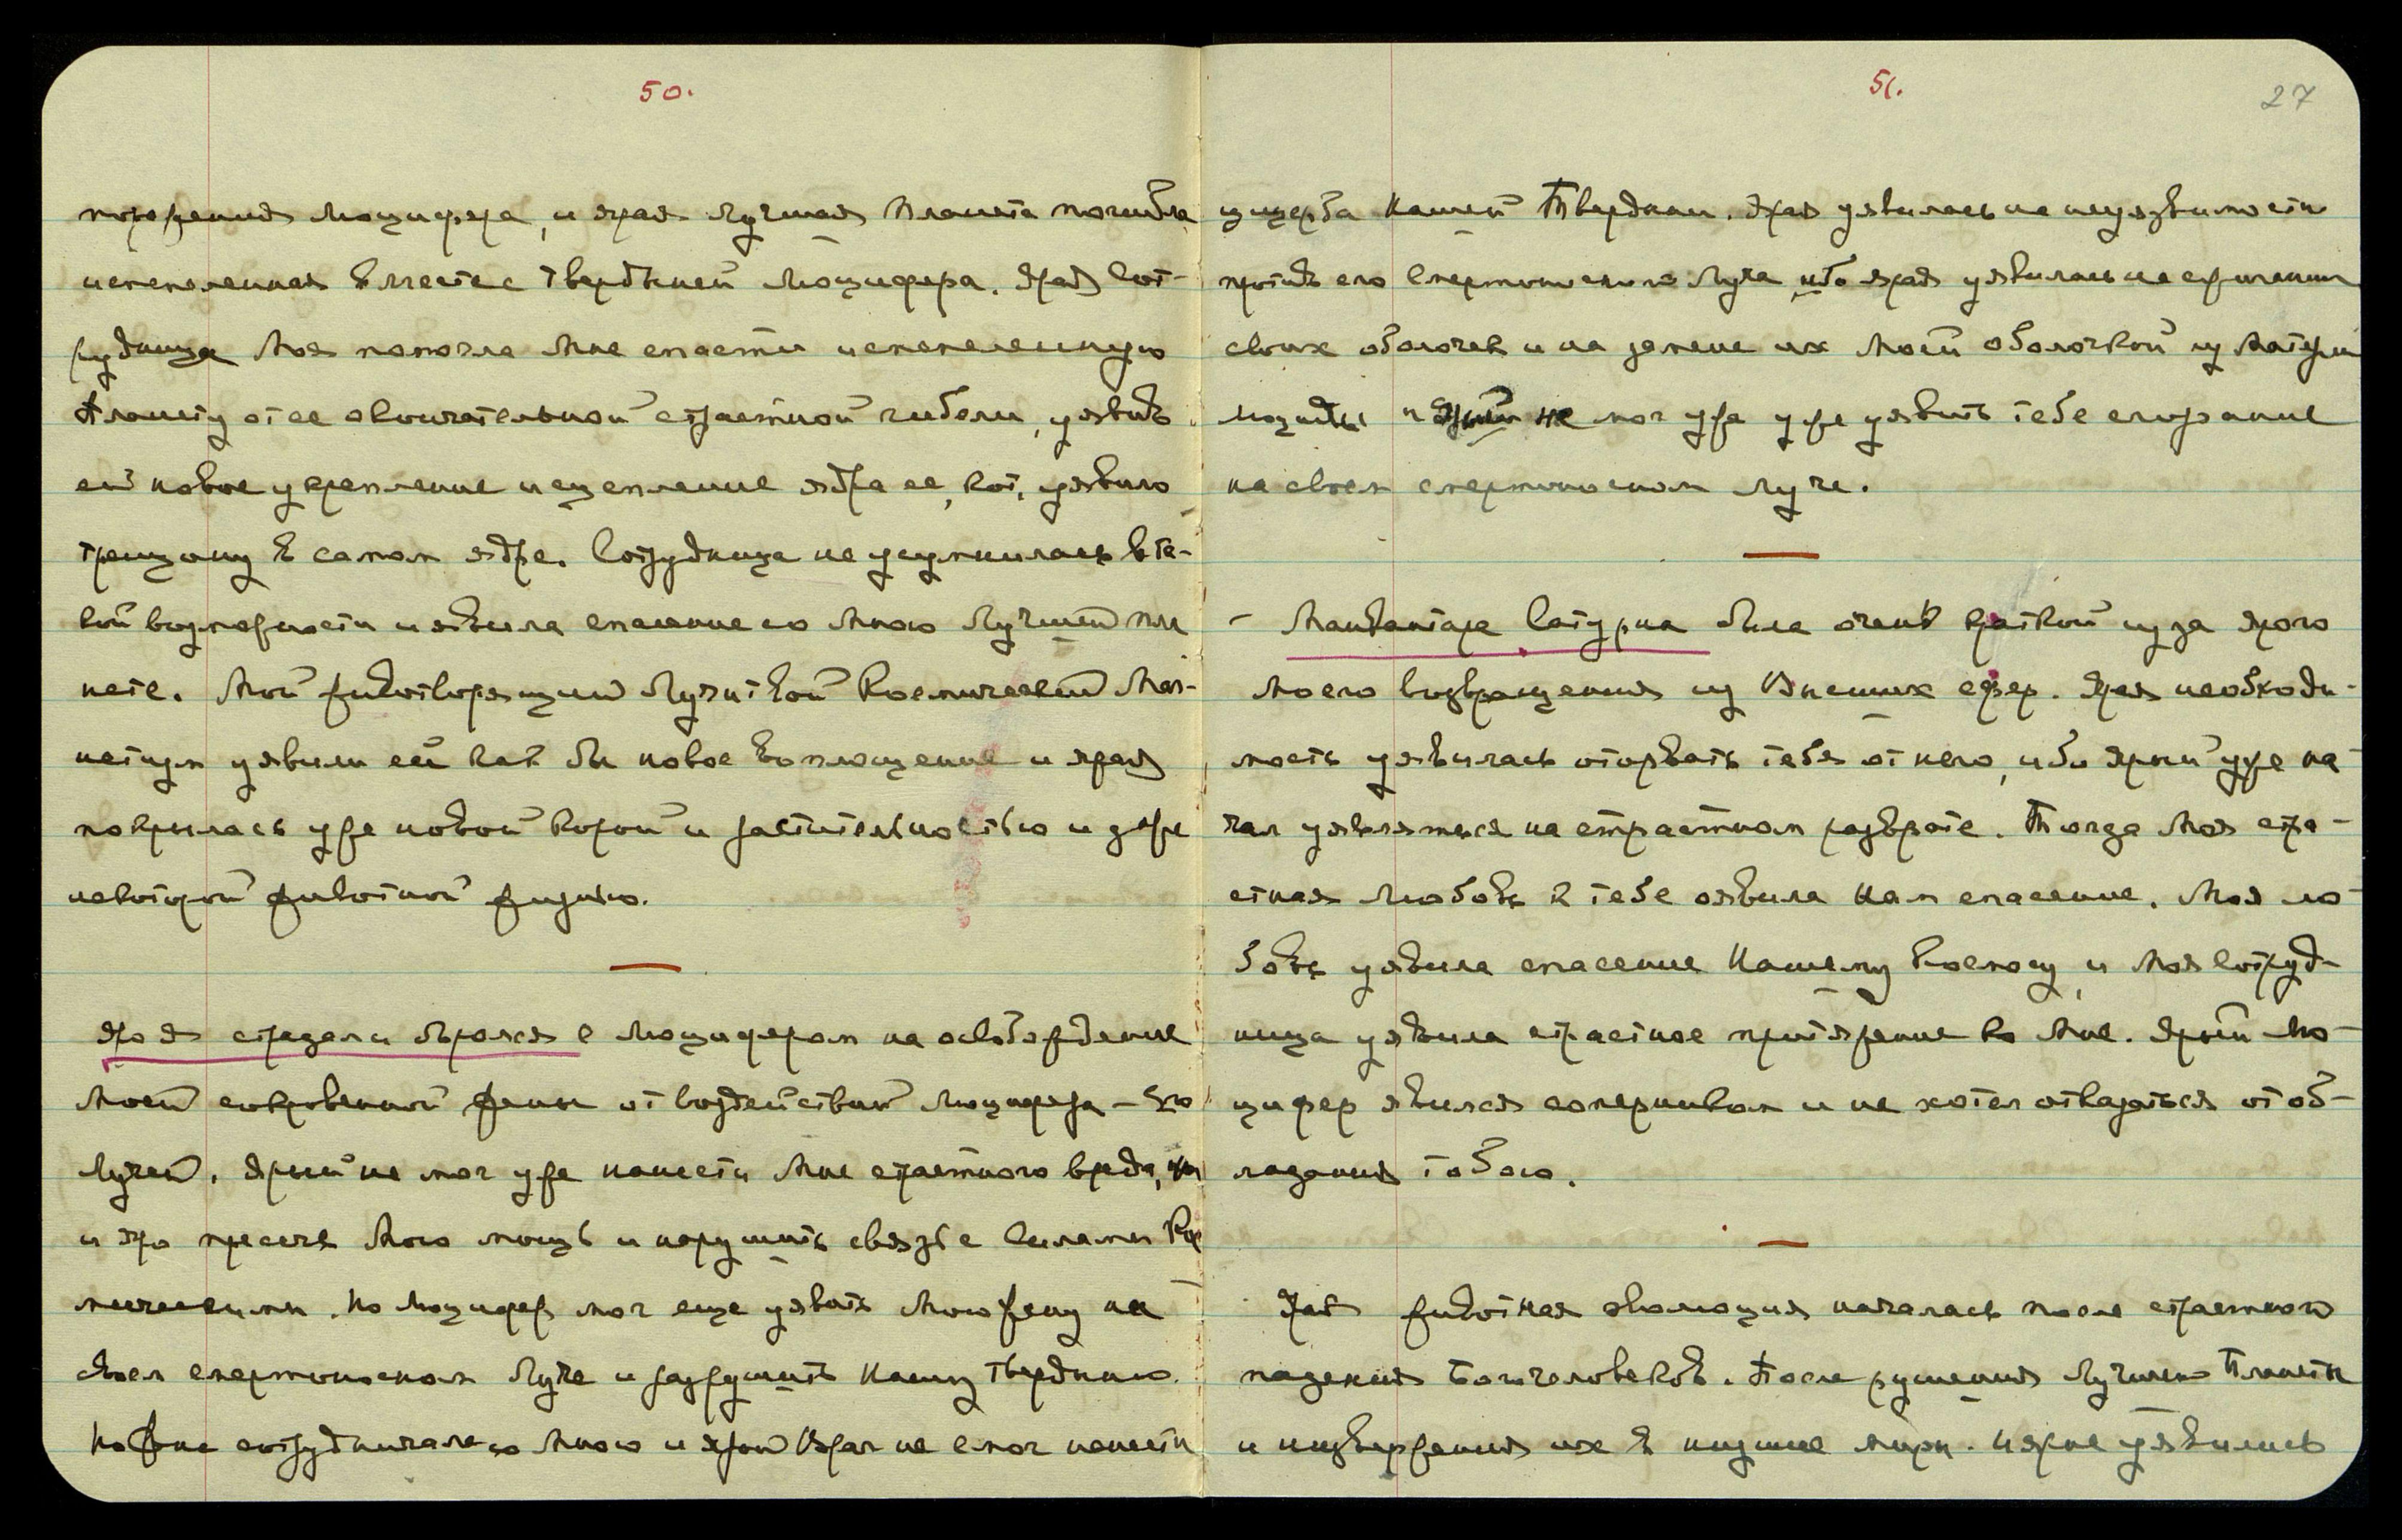 50.
порождения Люцифера, и ярая Лучшая Планета погибла,
испепеленная вместе с Твердыней Люцифера. Ярая Сот-
рудница Моя помогла Мне спасти испепеленную
Планету от ее окончательной страстной гибели, уявив
ей новое укрепление и сцепление ядра ее, кот. уявило
трещину в самом ядре. Сотрудница не усумнилась в та-
кой возможности и явила спасение со Мною Лучшей Пла
нете. Мой животворящий Луч и Твой Космический Маг-
нетизм уявили ей как бы новое воплощение и ярая
покрылась уже новой корой и растительностью и даже
некоторой животной жизнью.
Яро Я страдал и боролся с Люцифером на освобождение
Моей сокровенной Жены от воздействий Люцифера – Его
Лучей. Ярый не мог уже нанести Мне страстного вреда,
и яро пресечь Мою мощь и нарушить связь с Силами Кос
мическими. Но Люцифер мог еще уявить Мою Жену на
своем смертоносном Луче и разрушить Нашу Твердыню.
Но Жена сотрудничала со Мною и ярый Враг не смог нанести
51.
27
ущерба Нашей Твердыни. Ярая уявилась на неуязвимости
против его смертоносного Луча, ибо ярая уявилась на сжигании
своих оболочек и на замене их Моей оболочкой из Материи
Люциды и Ярый не мог уже уже уявить тебе сгорание
на своем смертоносном луче.
– Манвантара Сатурна была очень краткой из за ярого
Моего возвращения из Высших сфер. Ярая необходи-
мость уявилась оторвать тебя от него, ибо Ярый уже на-
чал уявляться на страстном разврате. Тогда Моя стра-
стная Любовь к тебе оявила Нам спасение. Моя лю-
бовь уявила спасение Нашему Космосу, и Моя Сотруд-
ница уявила страстное притяжение ко Мне. Ярый Лю-
цифер явился соперником и не хотел отказаться от об-
ладания тобою.
Яро животная эволюция началась после страстного
падения Богочеловеков. После рушения Лучшей Планеты
и низвержения их в низшие миры. И ярые уявились